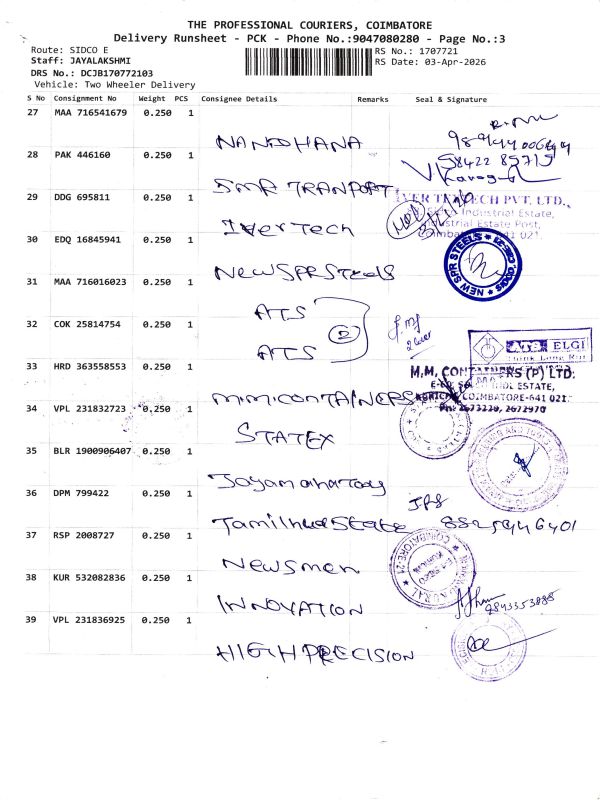 THE PROFESSIONAL COURIERS, COIMBATORE
Delivery Runsheet - PCK - Phone No.:9047080280 - Page No.:3
Route: SIDCO E
RS No.: 1707721
Staff: JAYALAKSHMI
RS Date: 03-Apr-2026
DRS No.: DCJB170772103
Vehicle: Two Wheeler Delivery
S No Consignment No Weight PCS Consignee Details Remarks Seal & Signature
27 MAA 716541679 0.250 1
NANDHANA
28 PAK 446160 0.250 1
98422 85715
SMR TRANPORT
29 DDG 695811 0.250 1
TECH PVT. LTD.,
Industrial Estate,
Industrial Estate Post,
641 021.
IverTech
30 EDQ 16845941 0.250 1
NEW SPR STEELS
New SPR Steels
31 MAA 716016023 0.250 1
ATS
2
32 COK 25814754 0.250 1
ATS ELGI
Think Long Run
ATS
33 HRD 363558553 0.250 1
M.M. CONTAINERS (P) LTD.
ESTATE,
COIMBATORE-641 021.
Ph: 2673220, 2672970
M.M. CONTAINERS
34 VPL 231832723 0.250 1
STATEX
35 BLR 1900906407 0.250 1
36 DPM 799422 0.250 1
Tamilnadu State
37 RSP 2008727 0.250 1
COIMBATORE-21
Newsmen
38 KUR 532082836 0.250 1
9843353888
INNOVATION
39 VPL 231836925 0.250 1
HIGH PRECISION